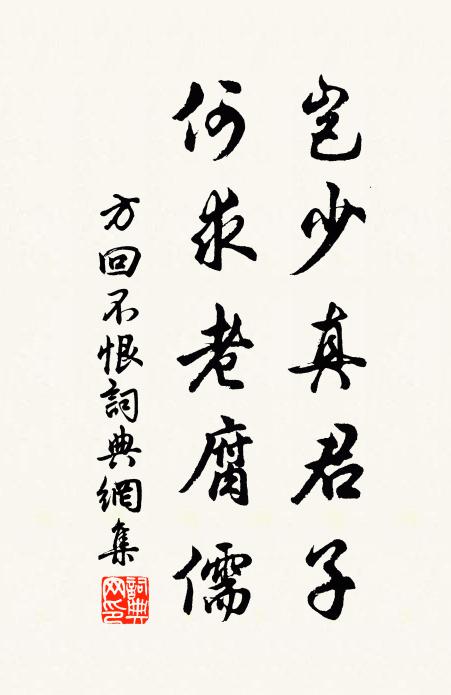 岂少真君子
何求老腐儒
方回不恨詞典網集
詞典网印